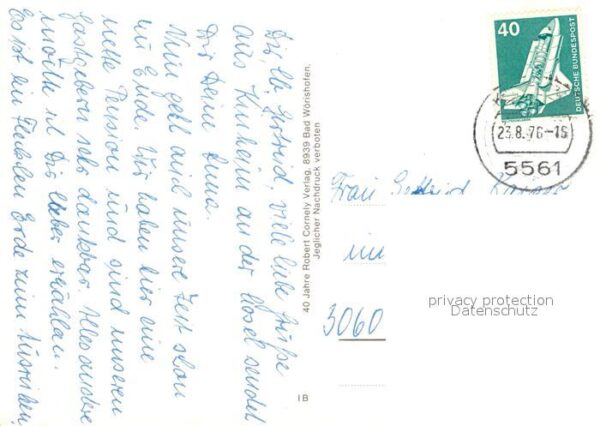 Dir, lb. Gertrud, viele liebe Grüße
aus Kinheim an der Mosel sendet
Dir Deine Anna.
Nun geht auch unsere Zeit schon
zu Ende. Wir haben hier eine
nette Pension und sind unseren
Gastgebern sehr dankbar. Alles andere
möchte ich Dir lieber erzählen.
Es ist ein Fleckchen Erde zum Ausruhen
40 Jahre Robert Cornely Verlag, 8939 Bad Wörishofen,
Jeglicher Nachdruck verboten
IB
40
DEUTSCHE BUNDESPOST
23.8.76-15
5561
Frau Gertrud
in
3060
privacy protection
Datenschutz